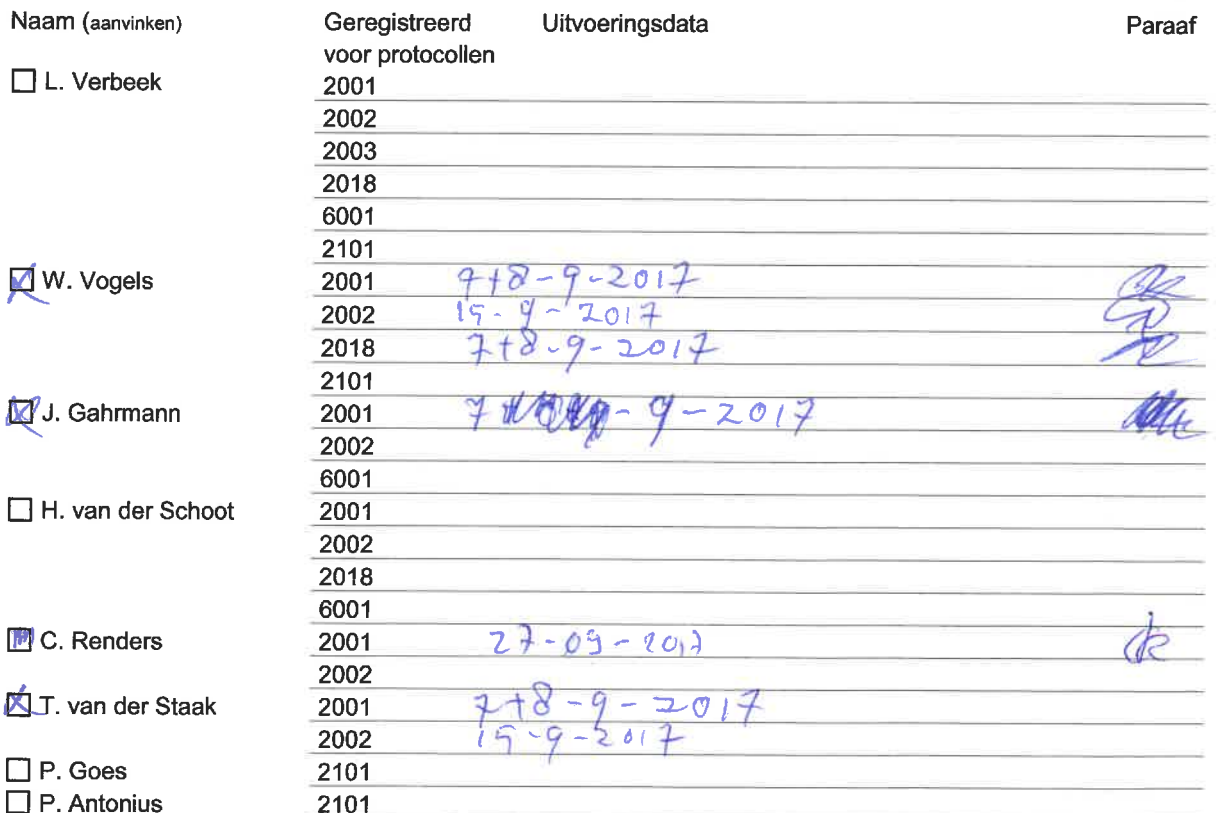 Naam (aanvinken) Geregistreerd Uitvoeringsdata Paraaf
voor protocollen
L. Verbeek 2001
2002
2003
2018
6001
2101
W. Vogels 2001 7+8-9-2017
2002 15-9-2017
2018 7+8-9-2017
2101
J. Gahrmann 2001 7 -9-2017
2002
6001
H. van der Schoot 2001
2002
2018
6001
C. Renders 2001 27-09-2017
2002
T. van der Staak 2001 7+8-9-2017
2002 15-9-2017
P. Goes 2101
P. Antonius 2101